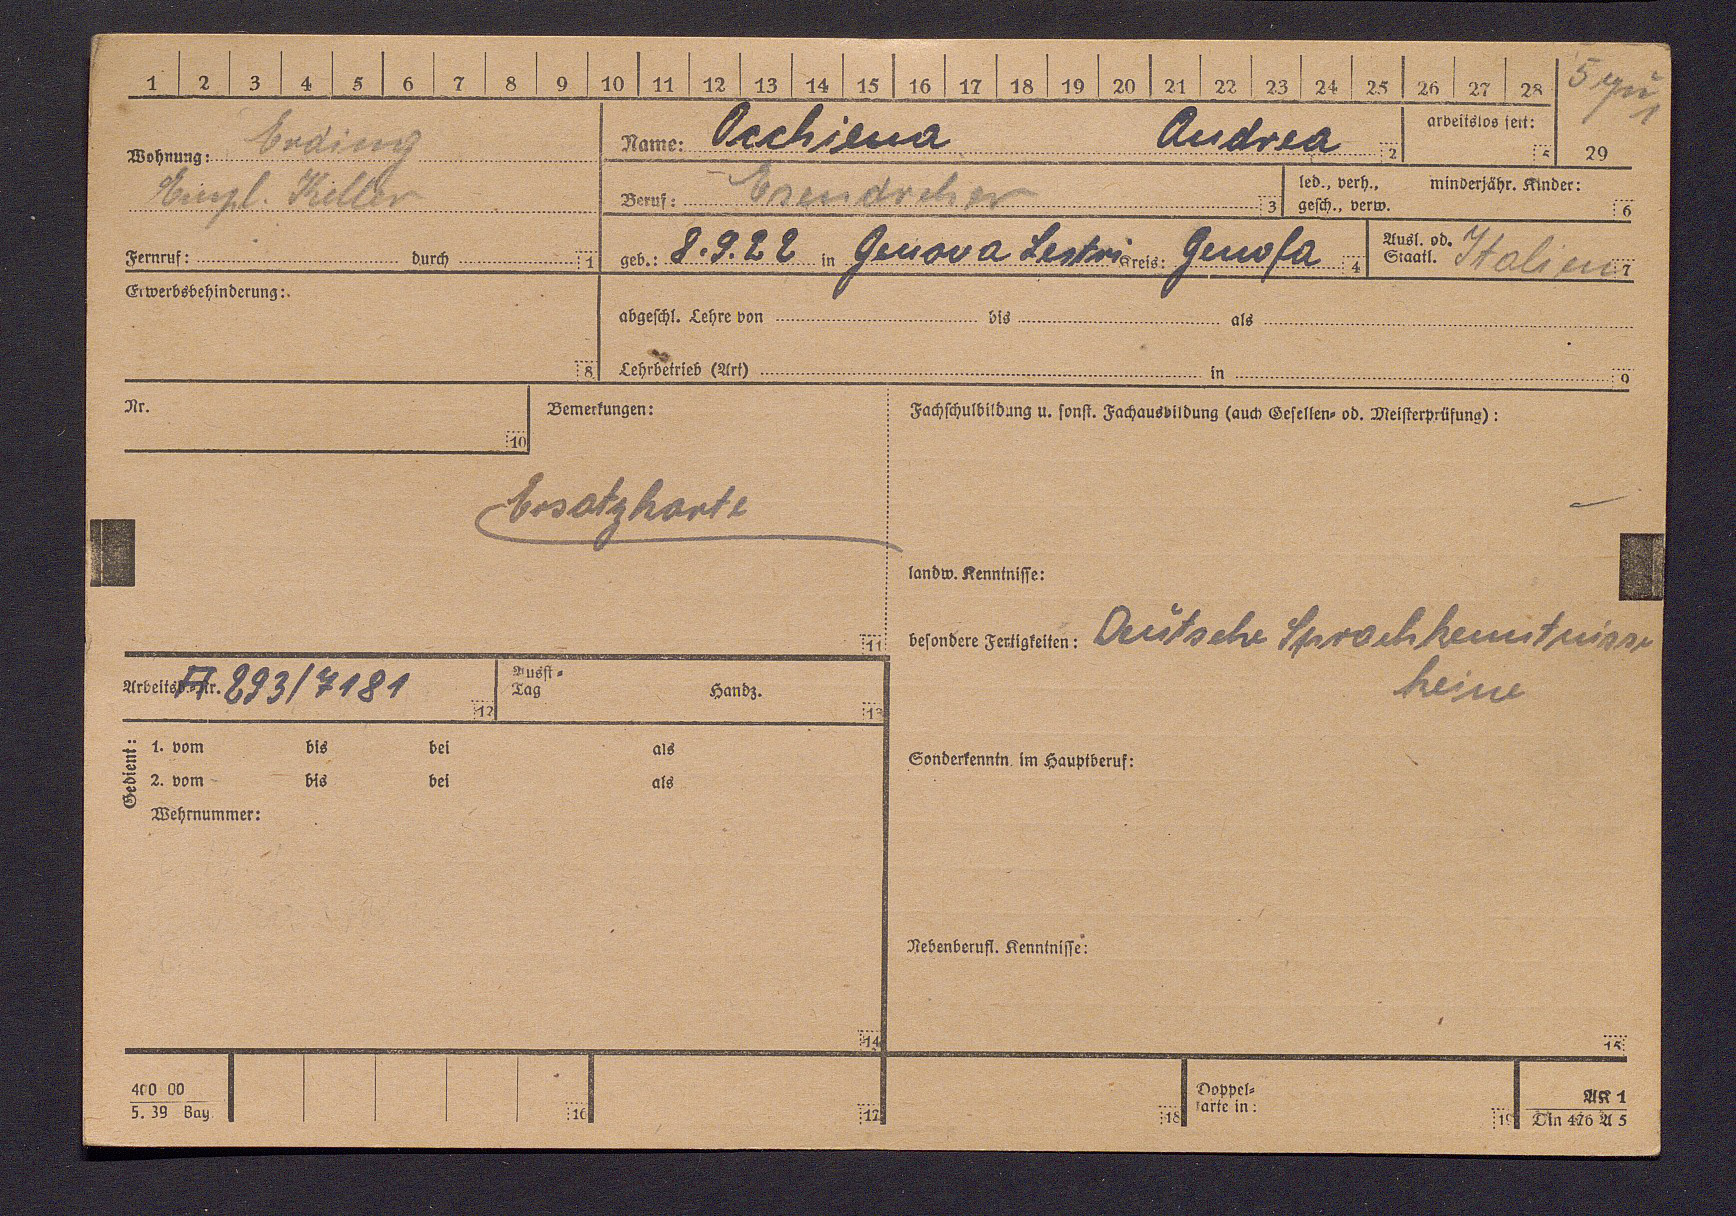 1 2 3 4 5 6 7 8 9 10 11 12 13 14 15 16 17 18 19 20 21 22 23 24 25 26 27 28
Wohnung: Erding
Empl. Keller
Fernruf: durch 1
Name: Occhiena Andrea 2
arbeitslos seit: 5
29
Beruf: Esendreher 3
led., verh., minderjähr. Kinder:
gesch., verw. 6
geb.: 8.9.22 in Genova Sestri Kreis: Genofa 4
Ausl. od.
Staatl. Italien 7
Erwerbsbehinderung:
8
abgeschl. Lehre von bis als
Lehrbetrieb (Art) in 9
Nr.
10
Bemerkungen:
Ersatzkarte
11
Fachschulbildung u. sonst. Fachausbildung (auch Gesellen- od. Meisterprüfung):
landw. Kenntnisse:
besondere Fertigkeiten: Deutsche Sprachkenntnisse
keine
Arbeitsb.-Nr. A 293/7181 12
Ausst-
Tag Handz.
13
Gedient:
1. vom bis bei als
2. vom bis bei als
Wehrnummer:
14
Sonderkenntn. im Hauptberuf:
Nebenberufl. Kenntnisse:
15
400 00
5. 39 Bay.
16
17
18
Doppel-
karte in:
19
AK 1
Din 476 A 5